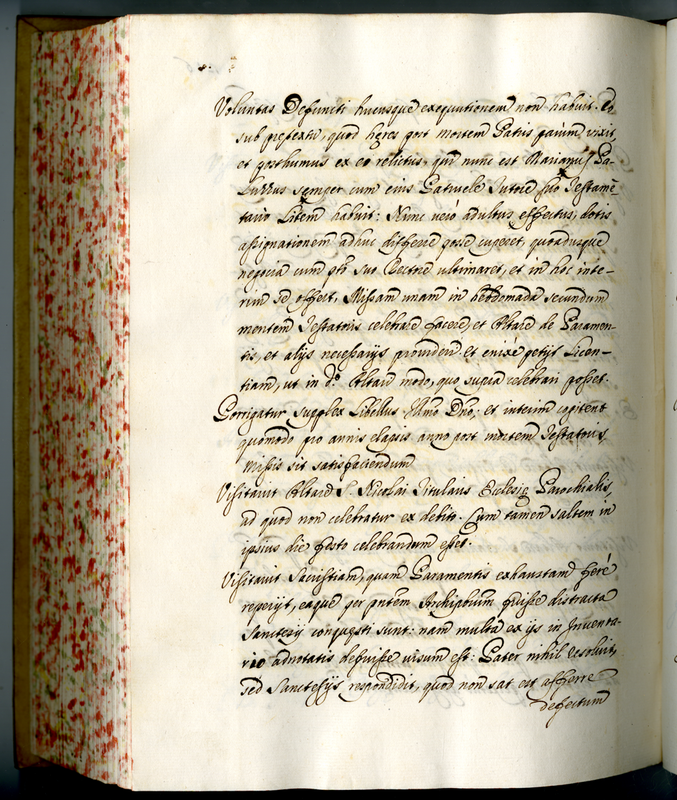 Voluntas Defuncti hucusque exequutionem non habuit. Eo
sub pretextu, quod heres post mortem Patris parum vixit
et posthumus ex eo relictus, qui nunc est Marianus Pa-
luzzus semper cum eius Patruele Tutore suo Testame
tario Litem habuit: Nunc verò adultus effectus, dotis
assignationem adhuc differre posse cuperet, quousque
negocia cum pto suo Tutore ultimaret, et in hoc inte-
rim se offert, Missam unam in hebdomada secundum
mentem Testatoris celebrare facere, et Altare de Paramen-
tis, et alijs necessarijs providere. Et enixè petijt Licen-
tiam, ut in do. Altare modo, quo supra celebrari posset.
Porrigatur supplex Libellus Emo Dno, et interim cogitent
quomodo pro annis elapsis anno post mortem Testatoris,
Missis sit satisfaciendum
Visitavit Altare S. Nicolai Titularis Ecclesie Parochialis,
ad quod non celebratur ex debito. Cum tamen saltem in
ipsius die festo celebrandum esset.
Visitavit Sacristiam, quam Paramentis exhaustam ferè
reperijt, eaque per pntem Archipbum fuisse distracta
Sanctesij conquesti sunt: nam multa ex ijs in Inventa-
rio adnotatis defuisse visum est: Pater nihil resolvit,
sed Sanctesijs respondidit, quod non sat est afferre
defectum